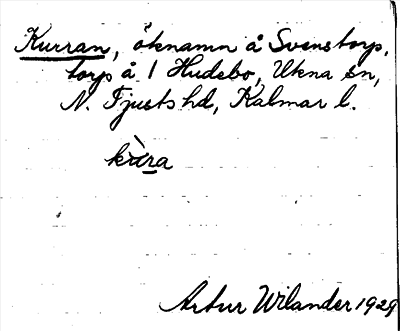 Kurran, öknamn å Svenstorp,
torp å 1 Hudebo, Ukna sn,
N. Tjusts hd, Kalmar l.
kùra
Artur Wilander 1929